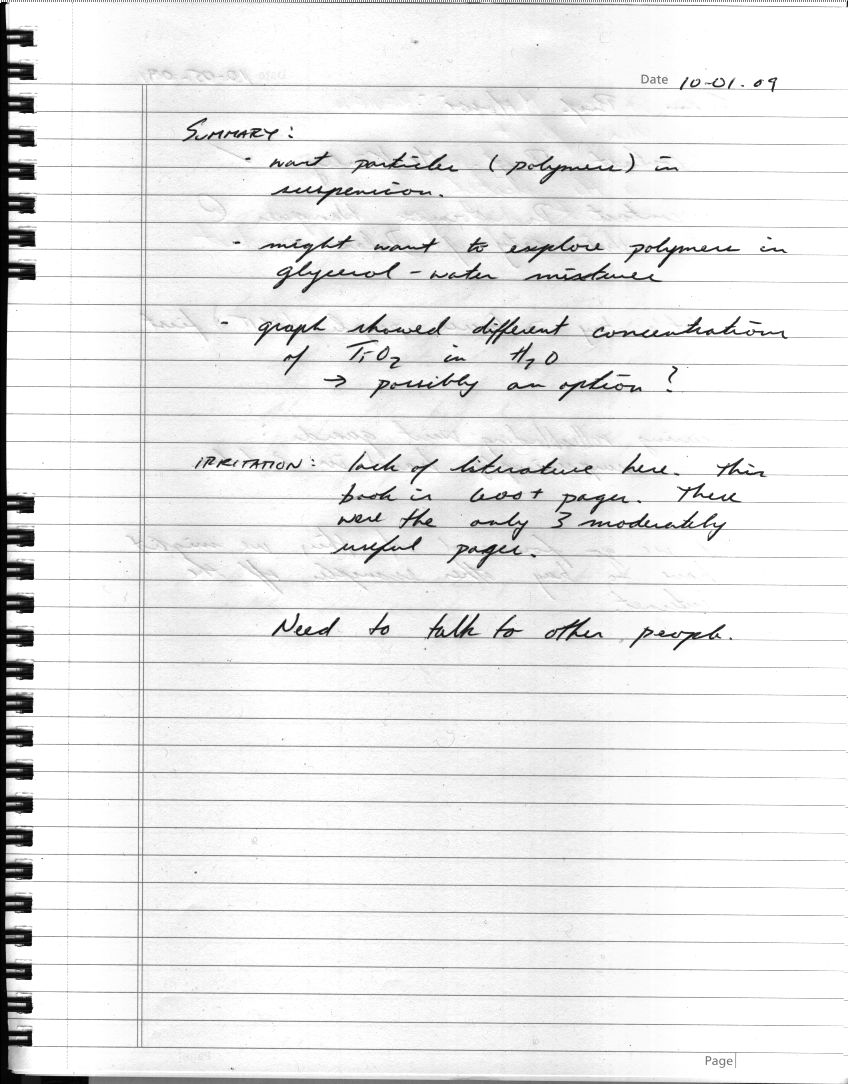 Date 10-01.09
SUMMARY:
- want particles (polymers) in
suspension.
- might want to explore polymers in
glycerol-water mixtures
- graph showed different concentrations
of TiO2 in H2O
→ possibly an option?
IRRITATION: lack of literature here. This
book is 600+ pages. These
were the only 3 moderately
useful pages.
Need to talk to other people.
Page